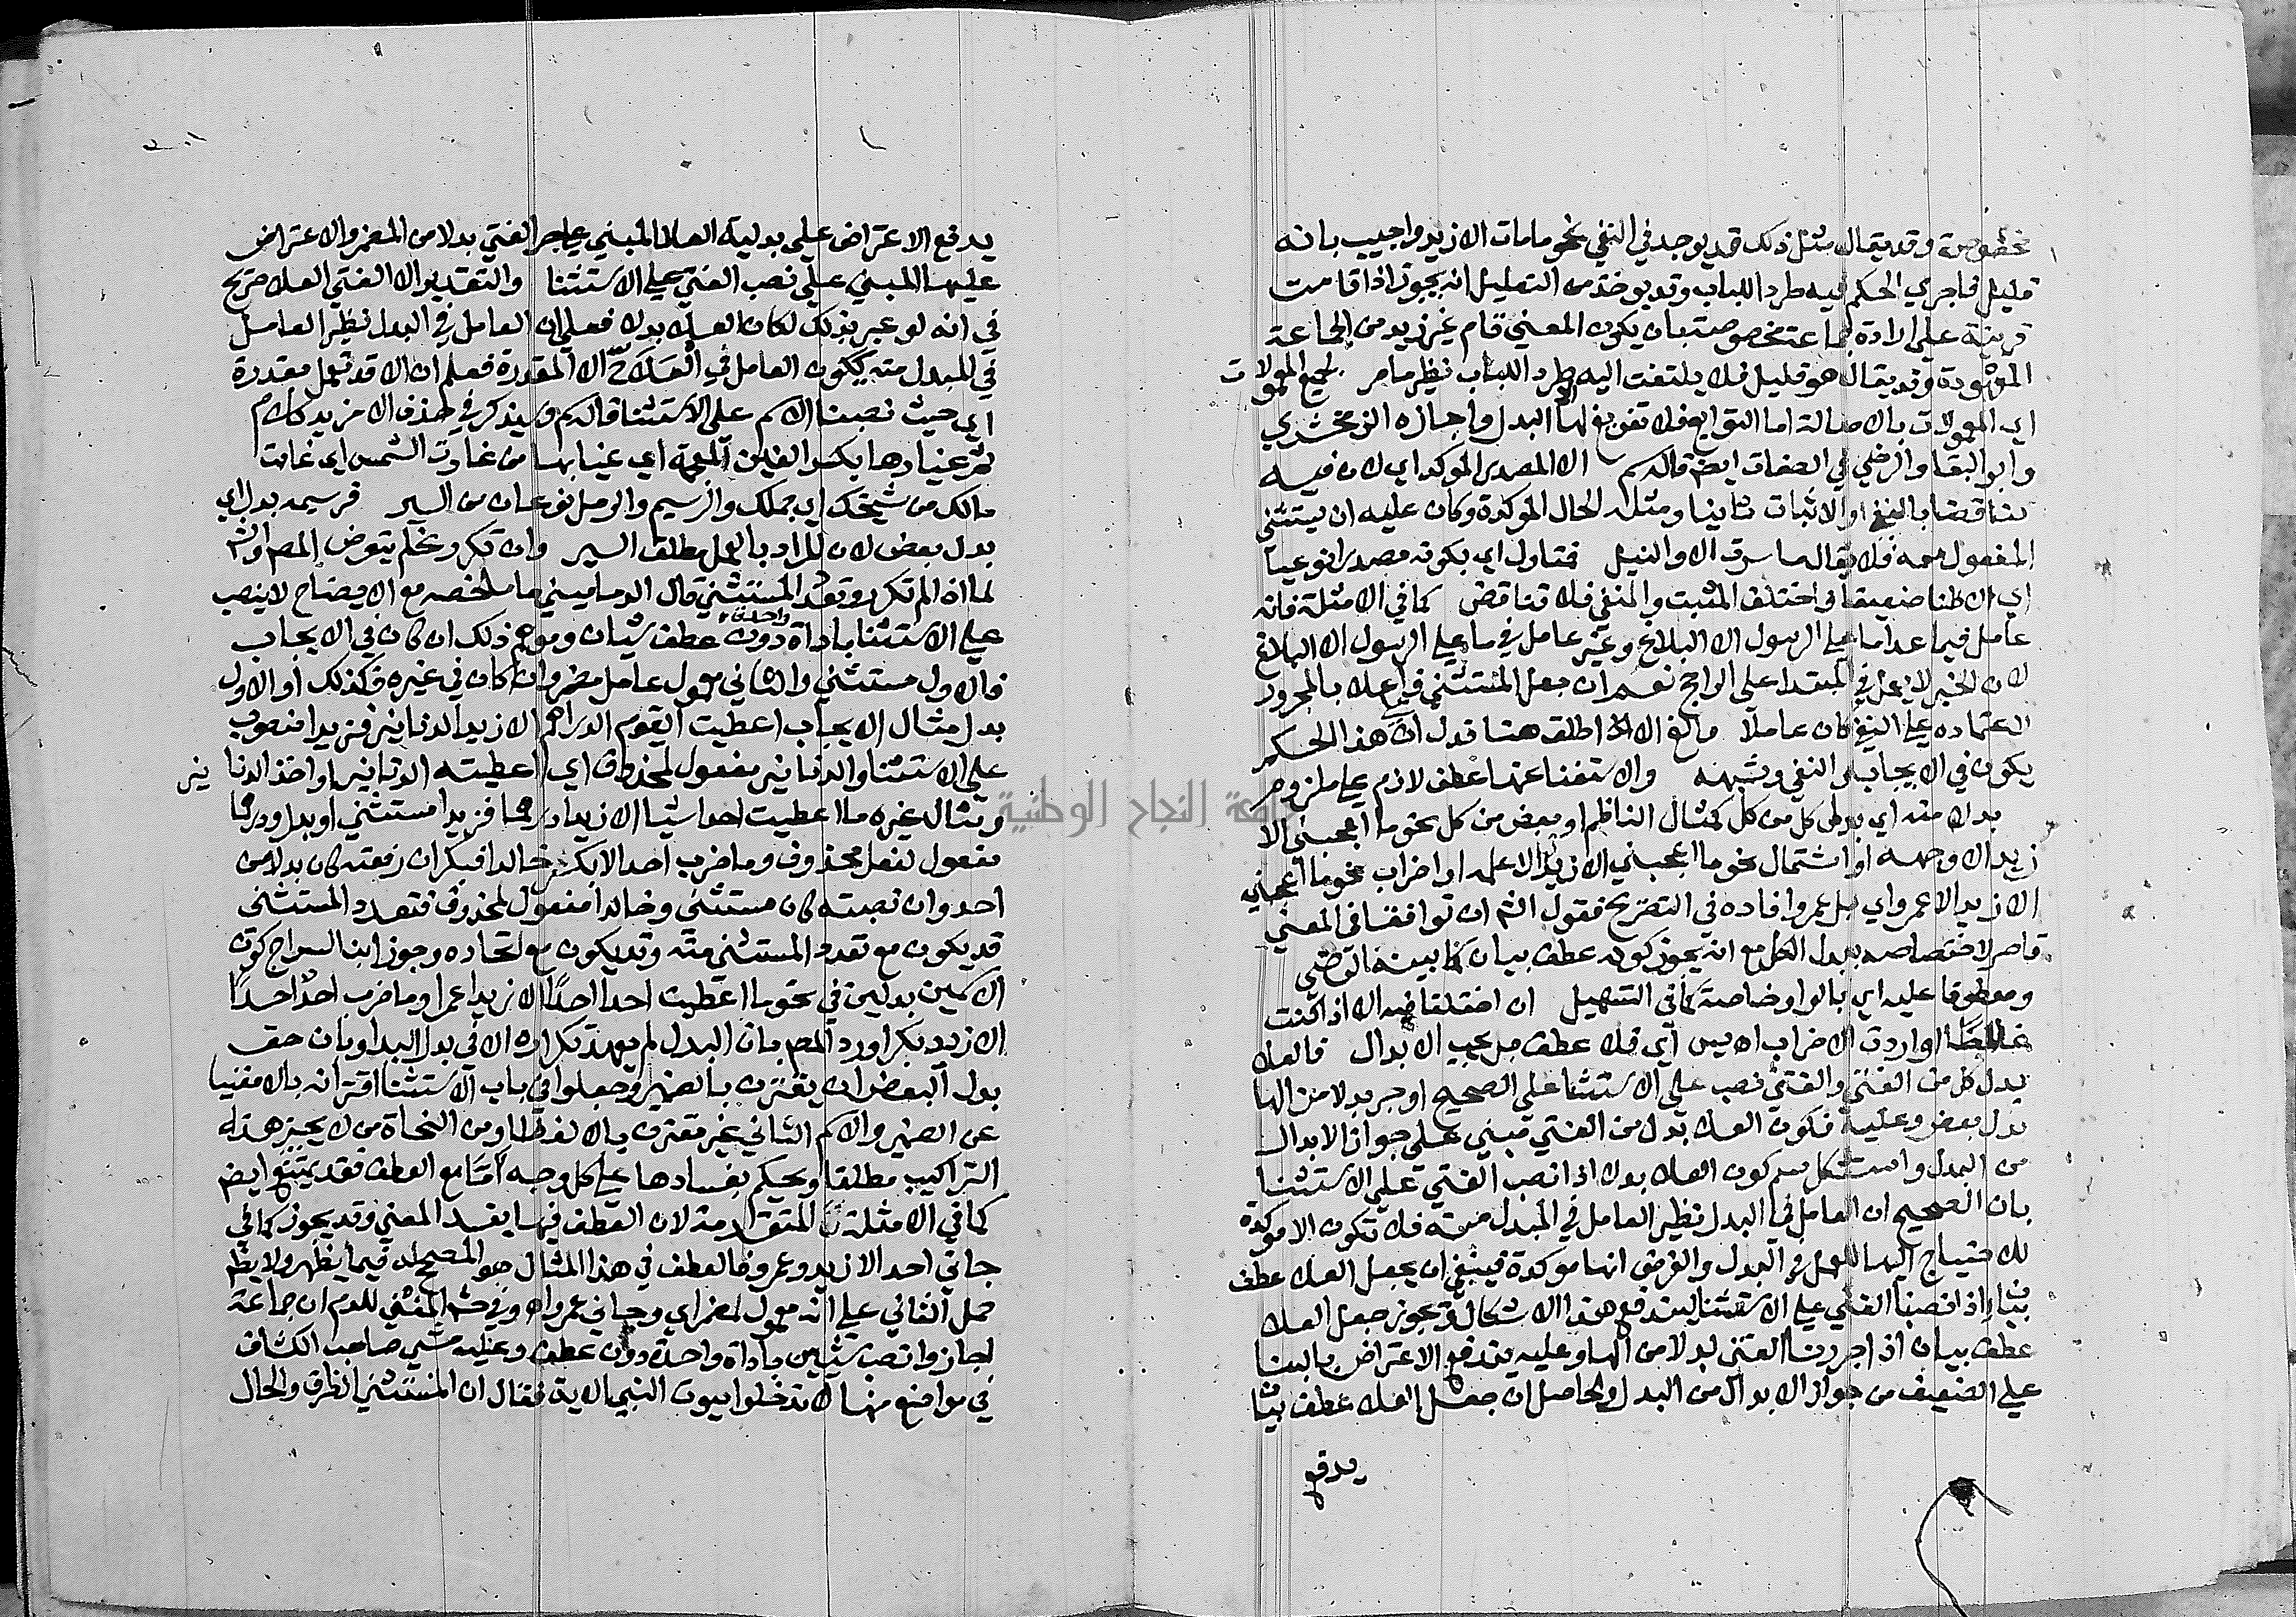 مخصوصة وقد يقال مثل ذلك قد يوجد في النفي نحو ما مات الا زيد واجيب بانه
قليل فاجري الحكم فيه طردا للباب وقد يوخذ من التعليل انه يجوز اذا قامت
قرينة على ارادة جماعة مخصوصة بان يكون المعني قام غير زيد من الجماعة
وقد يقال هو قليل فلا يلتفت اليه طرد اللباب نظير ما مر لجميع المعمولات
اي المعمولات بالاصالة اما التوابع فلا تفريغ لها الا البدل واجازه الزمخشري
وابو البقا والرضي في الصفات ايضا قاله سم الا المصدر الموكد اي لان فيه
تناقضا بالنفي اولا والاثبات ثانيا ومثله الحال الموكدة وكان عليه ان يستثني
المفعول معه فلا يقال ما سرت الا والنيل فمتاول اي بكونه مصدرا نوعيا
اي الا ظنا ضعيفا فاختلف المثبت والمنفي فلا تناقض كما في الامثلة فانه
عامل فيما عدا ما على الرسول الا البلاغ وغير عامل في ما على الرسول الا البلاغ
لان الخبر لا يعمل في المبتدا على الراجح نعم ان جعل المستثني فاعلا بالمجرور
لاعتماده على النفي كان عاملا ما لغ الا الخ اطلق هنا فدل ان هذا الحكم
يكون في الايجاب والنفي وشبهه والاستغنا عنها عطف لازم على ملزوم
بدلا منه اي بدل كل من كل كمثال الناظم او بعض من كل نحو ما اعجبني الا
زيد الا وجهه او اشتمال نحو ما اعجبني الا زيد الا علمه او اضراب نحو ما اعجبني
الا زيد الا عمرو اي بل عمرو افاده في التصريح فقول الش ان توافقا في المعني
قاصر لاختصاصه ببدل الكل مع انه يجوز كونه عطف بيان كما بينه المرتضى
ومعطوفا عليه اي بالواو خاصة كما في التسهيل ان اختلفا فيه الا اذا كنت
غالطا او اردت الاضراب اه يس اي فلا عطف بل يجب الابدال فالعلا
بدل كل من الفتى والفتى نصب على الاستثنا على الصحيح او جر بدلا من الها
بدل بعض وعليه فكون العلا بدل من الفتى مبني على جواز الابدال
من البدل واستشكل سم كون العلا بدلا اذا نصب الفتى على الاستثنا
بان الصحيح ان العامل في البدل نظير العامل في المبدل منه فلا تكون الا موكدة
للاحتياج اليها للعمل في البدل والفرض انها موكدة فينبغي ان يجعل العلا عطف
بيان اذا نصبنا الفتى على الاستثنا ليندفع هذا الاشكال ويجوز جعل العلا
عطف بيان اذا جررنا الفتى بدلا من الها وعليه يندفع الاعتراض بالبنا
على الضعيف من جواز الابدال من البدل والحاصل ان جعل العلا عطف بيان
يدفع
يدفع الاعتراض على بدلية العلا المبني على جر الفتى بدلا من المضمر والاعتراض
عليها المبني على نصب الفتى على الاستثنا والتقدير الا الفتى العلا صريح
في انه لو عبر بذلك لكان العلا بدلا فعلى ان العامل في البدل نظير العامل
في المبدل منه يكون العامل في العلا ح الا المقدرة فعلم ان الا قد تعمل مقدرة
اي حيث نصبنا الاسم على الاستثنا قاله سم وسيذكر في حذف الا مزيد كلام
ثم غيارها بكسر الغين المعجمة اي غيابها من غارت الشمس اي غابت
مالك من شيخك اي جملك والرسيم والرمل نوعان من السير فرسيمه بدل اي
بدل بعض لان المراد بالعمل مطلق السير وان تكرر الخ لم يتعرض المص والش
لما اذا لم تكرر وتعدد المستثني قال الدماميني ما ملخصه مع الايضاح لا ينصب
على الاستثنا باداة واحدة دون عطف شيان وموهم ذلك ان كان في الايجاب
فالاول مستثني والثاني معمول عامل مضمر وان كان في غيره فكذلك او الاول
بدل مثال الايجاب اعطيت القوم الدراهم الا زيدا الدنانير فزيدا منصوب
على الاستثنا والدنانير مفعول لمحذوف اي اعطيته الدنانير او اخذ الدنانير
ومثال غيره ما اعطيت احدا شيا الا زيدا درهما فزيدا مستثني او بدل ودرهما
مفعول لفعل محذوف وما ضرب احد الا بكر خالدا فبكر ان رفعته كان بدلا من
احد وان نصبته كان مستثني وخالدا مفعول لمحذوف فتعدد المستثني
قد يكون مع تعدد المستثني منه وقد يكون مع اتحاده وجوز ابن السراج كون
الاسمين بدلين في نحو ما اعطيت احدا احدا الا زيدا عمرا وما ضرب احد احدا
الا زيد بكرا ورد المص بان البدل لم يعهد تكراره الا في بدل البدا وبان حق
بدل البعض ان يقترن بالضمير وجعلوا في باب الاستثنا اقترانه بالا مغنيا
عن الضمير والاسم الثاني غير مقترن بالا لفظا ومن النحاة من لا يجيز هذه
التراكيب مطلقا ويحكم بفسادها على كل وجه اما مع العطف فقد يمتنع ايضا
كما في الامثلة المتقدمة لان العطف فيها يفسد المعني وقد يجوز كما في
جاني احد الا زيد وعمرو فالعطف في هذا المثال هو المصحح له فيما يظهر ولا يظهر
حمل الثاني على انه معمول لمضمر اي وجاني عمرو اه وفي المغني للدم ان جماعة
اجازوا نصب شيئين باداة واحدة دون عطف وعليه مشى صاحب الكشاف
في مواضع منها لا تدخلوا بيوت النبي الاية فقال ان المستثني الظرف والحال
جامعة النجاح الوطنية